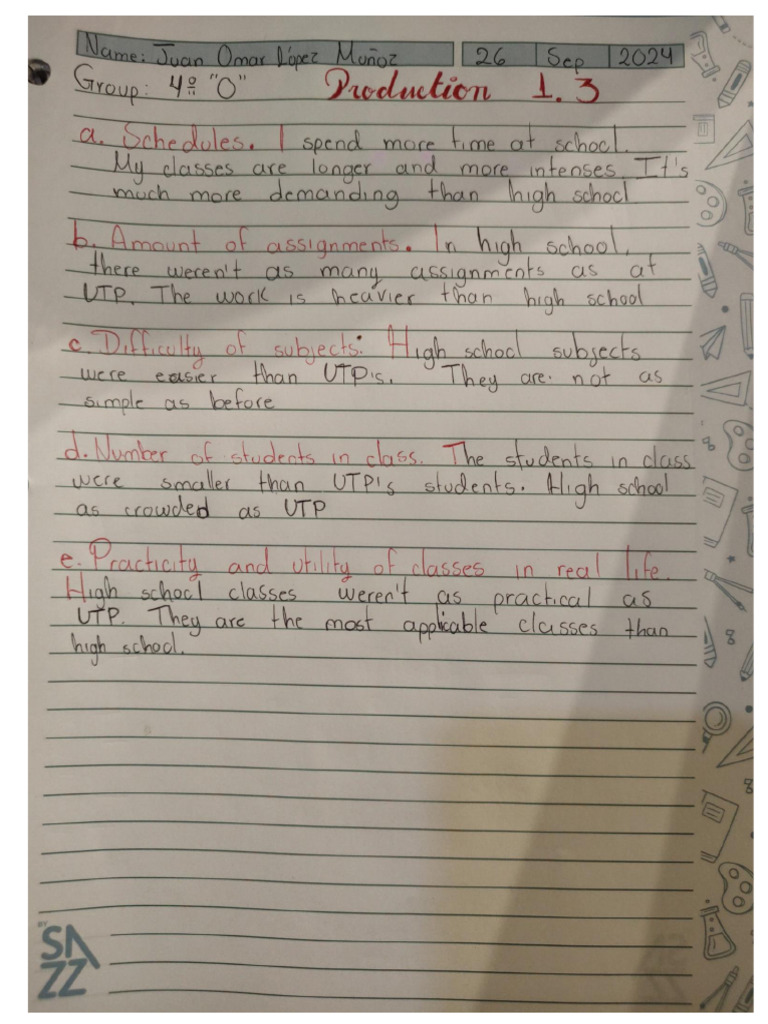 Name: Juan Omar López Muñoz 26 Sep 2024
Group: 4º "O" Production 1.3
a. Schedules. I spend more time at school.
My classes are longer and more intenses. It's
much more demanding than high school
b. Amount of assignments. In high school,
there weren't as many assignments as at
UTP. The work is heavier than high school
c. Difficulty of subjects: High school subjects
were easier than UTP's. They are not as
simple as before
d. Number of students in class. The students in class
were smaller than UTP's students. High school
as crowded as UTP
e. Practicity and utility of classes in real life.
High school classes weren't as practical as
UTP. They are the most applicable classes than
high school.
BY
SAZZ